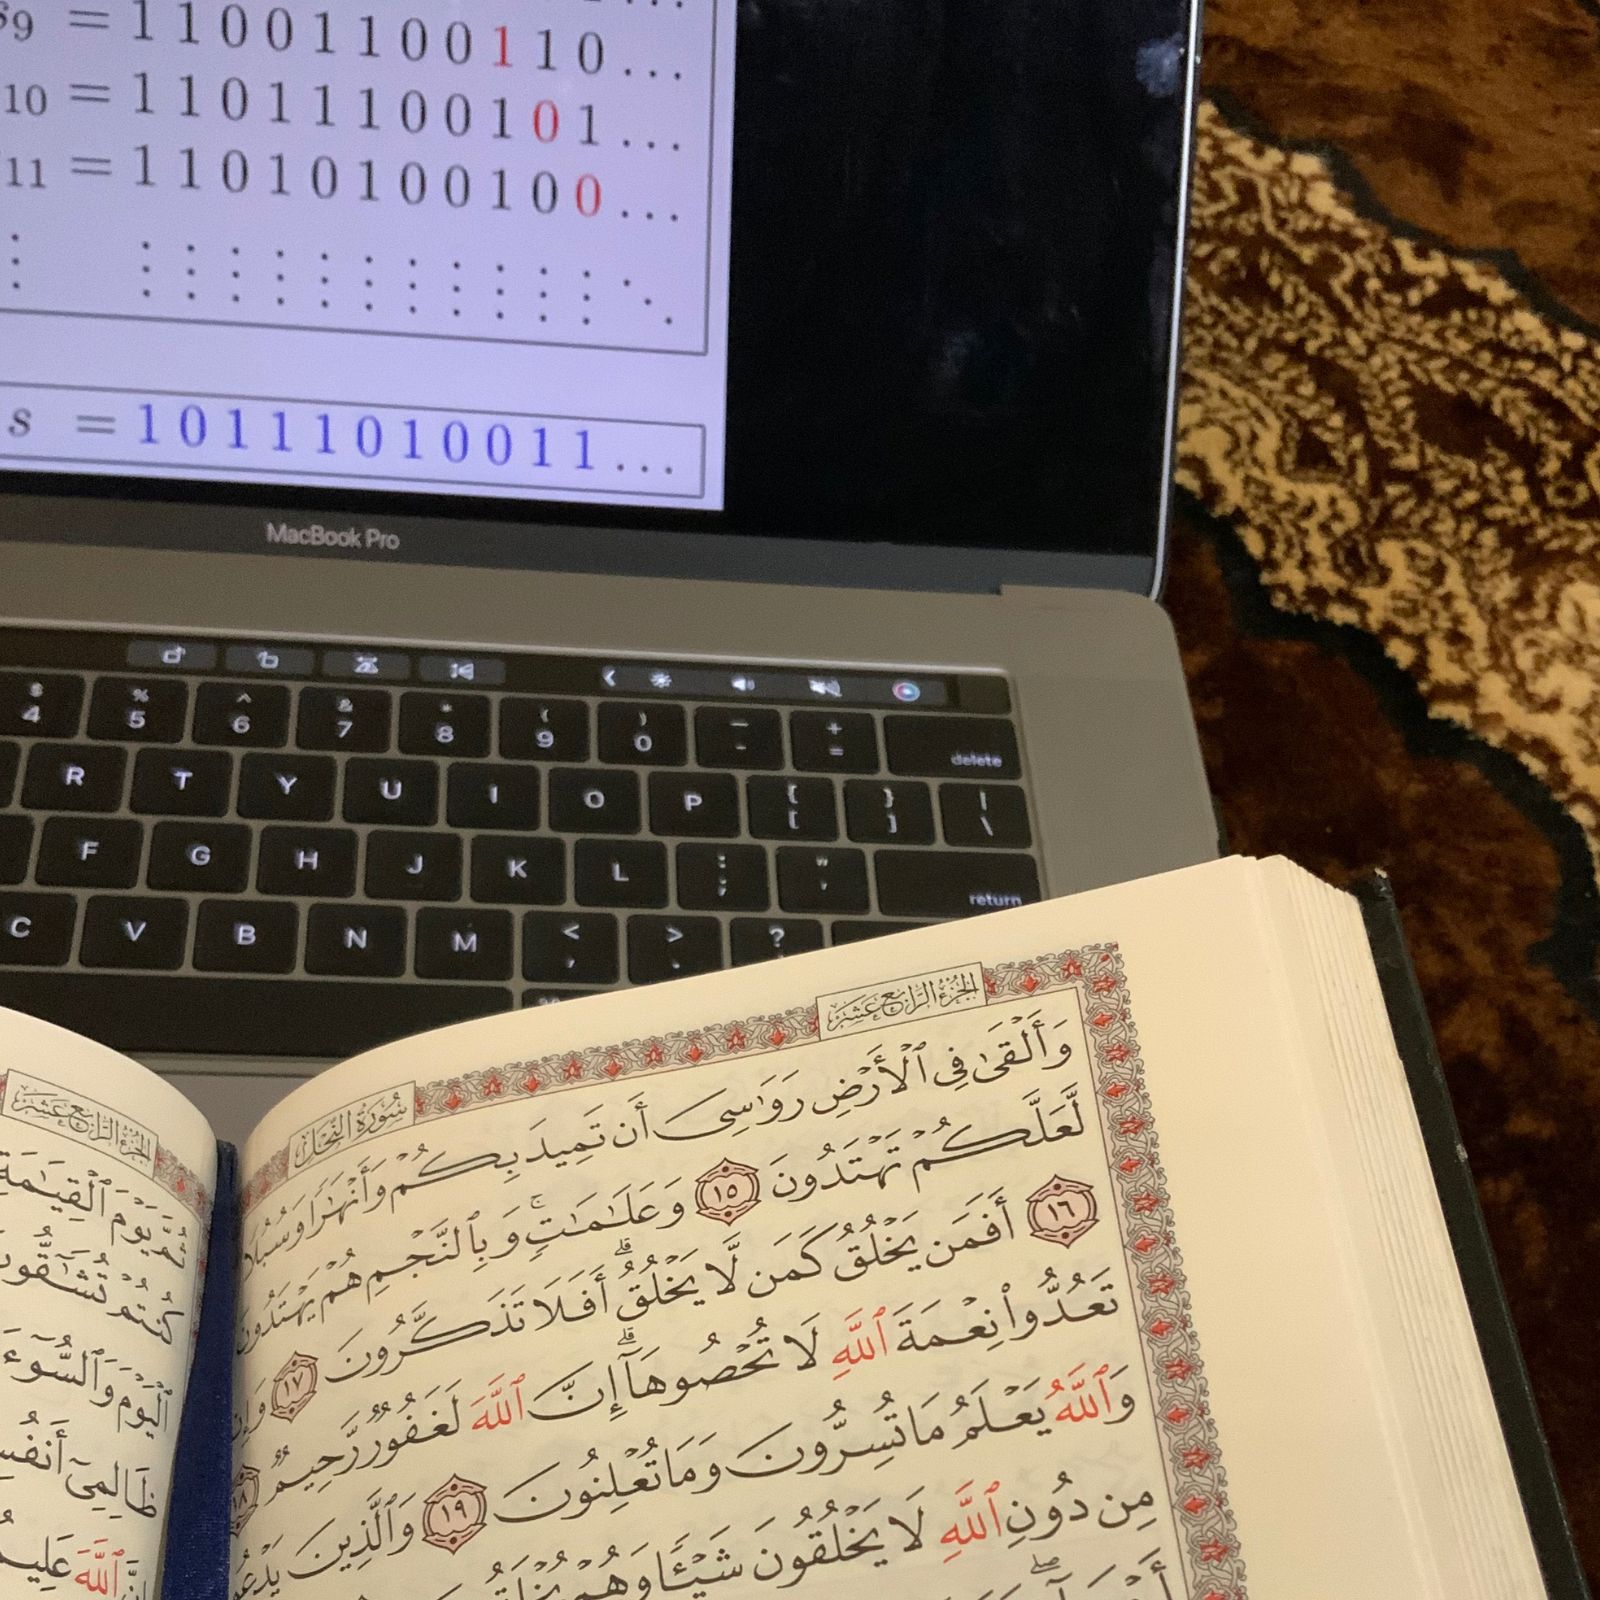 s9 = 1 1 0 0 1 1 0 0 1 1 0 ...
10 = 1 1 0 1 1 1 0 0 1 0 1 ...
11 = 1 1 0 1 0 1 0 0 1 0 0 ...
s = 1 0 1 1 1 0 1 0 0 1 1 ...
MacBook Pro
$ % ^ & * ( ) _ +
4 5 6 7 8 9 0 - = delete
R T Y U I O P { [ } ] | \
F G H J K L : ; " ' return
C V B N M < , > . ?
الجزء الرابع عشر
سورة النحل
وَأَلْقَىٰ فِى ٱلْأَرْضِ رَوَٰسِىَ أَن تَمِيدَ بِكُمْ وَأَنْهَٰرًا وَسُبُلًا
لَّعَلَّكُمْ تَهْتَدُونَ ١٥ وَعَلَٰمَٰتٍۚ وَبِٱلنَّجْمِ هُمْ يَهْتَدُونَ
١٦ أَفَمَن يَخْلُقُ كَمَن لَّا يَخْلُقُۗ أَفَلَا تَذَكَّرُونَ ١٧ وَإِن
تَعُدُّوا۟ نِعْمَةَ ٱللَّهِ لَا تُحْصُوهَآۗ إِنَّ ٱللَّهَ لَغَفُورٌ رَّحِيمٌ ١٨
وَٱللَّهُ يَعْلَمُ مَا تُسِرُّونَ وَمَا تُعْلِنُونَ ١٩ وَٱلَّذِينَ يَدْعُونَ
مِن دُونِ ٱللَّهِ لَا يَخْلُقُونَ شَيْـًٔا وَهُمْ
الجزء الرابع عشر
ثُمَّ يَوْمَ ٱلْقِيَٰمَةِ
كُنتُمْ تُشَٰٓقُّونَ
ٱلْيَوْمَ وَٱلسُّوٓءَ
ظَالِمِىٓ
إِنَّ ٱللَّهَ عَلِيمٌ